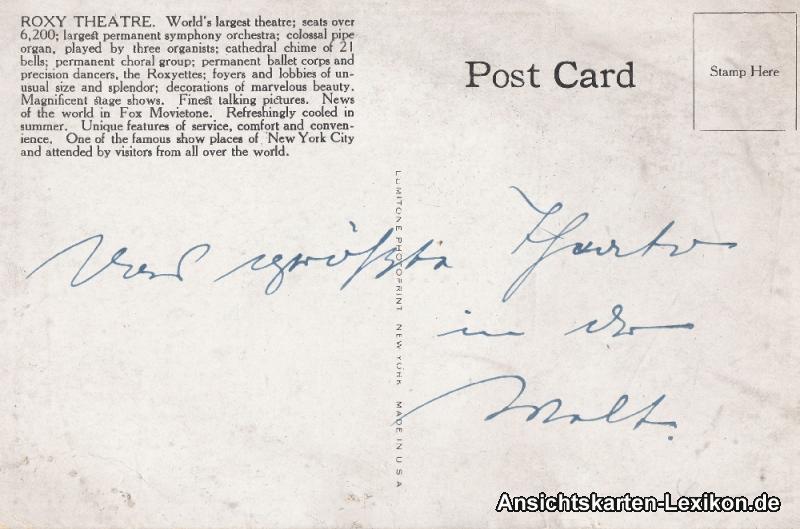 ROXY THEATRE. World's largest theatre; seats over
6,200; largest permanent symphony orchestra; colossal pipe
organ, played by three organists; cathedral chime of 21
bells; permanent choral group; permanent ballet corps and
precision dancers, the Roxyettes; foyers and lobbies of un-
usual size and splendor; decorations of marvelous beauty.
Magnificent stage shows. Finest talking pictures. News
of the world in Fox Movietone. Refreshingly cooled in
summer. Unique features of service, comfort and conven-
ience. One of the famous show places of New York City
and attended by visitors from all over the world.
Post Card
Stamp Here
LUMITONE PHOTOPRINT NEW YORK MADE IN U S A
Das größte Theater
in der
Welt.
Ansichtskarten-Lexikon.de